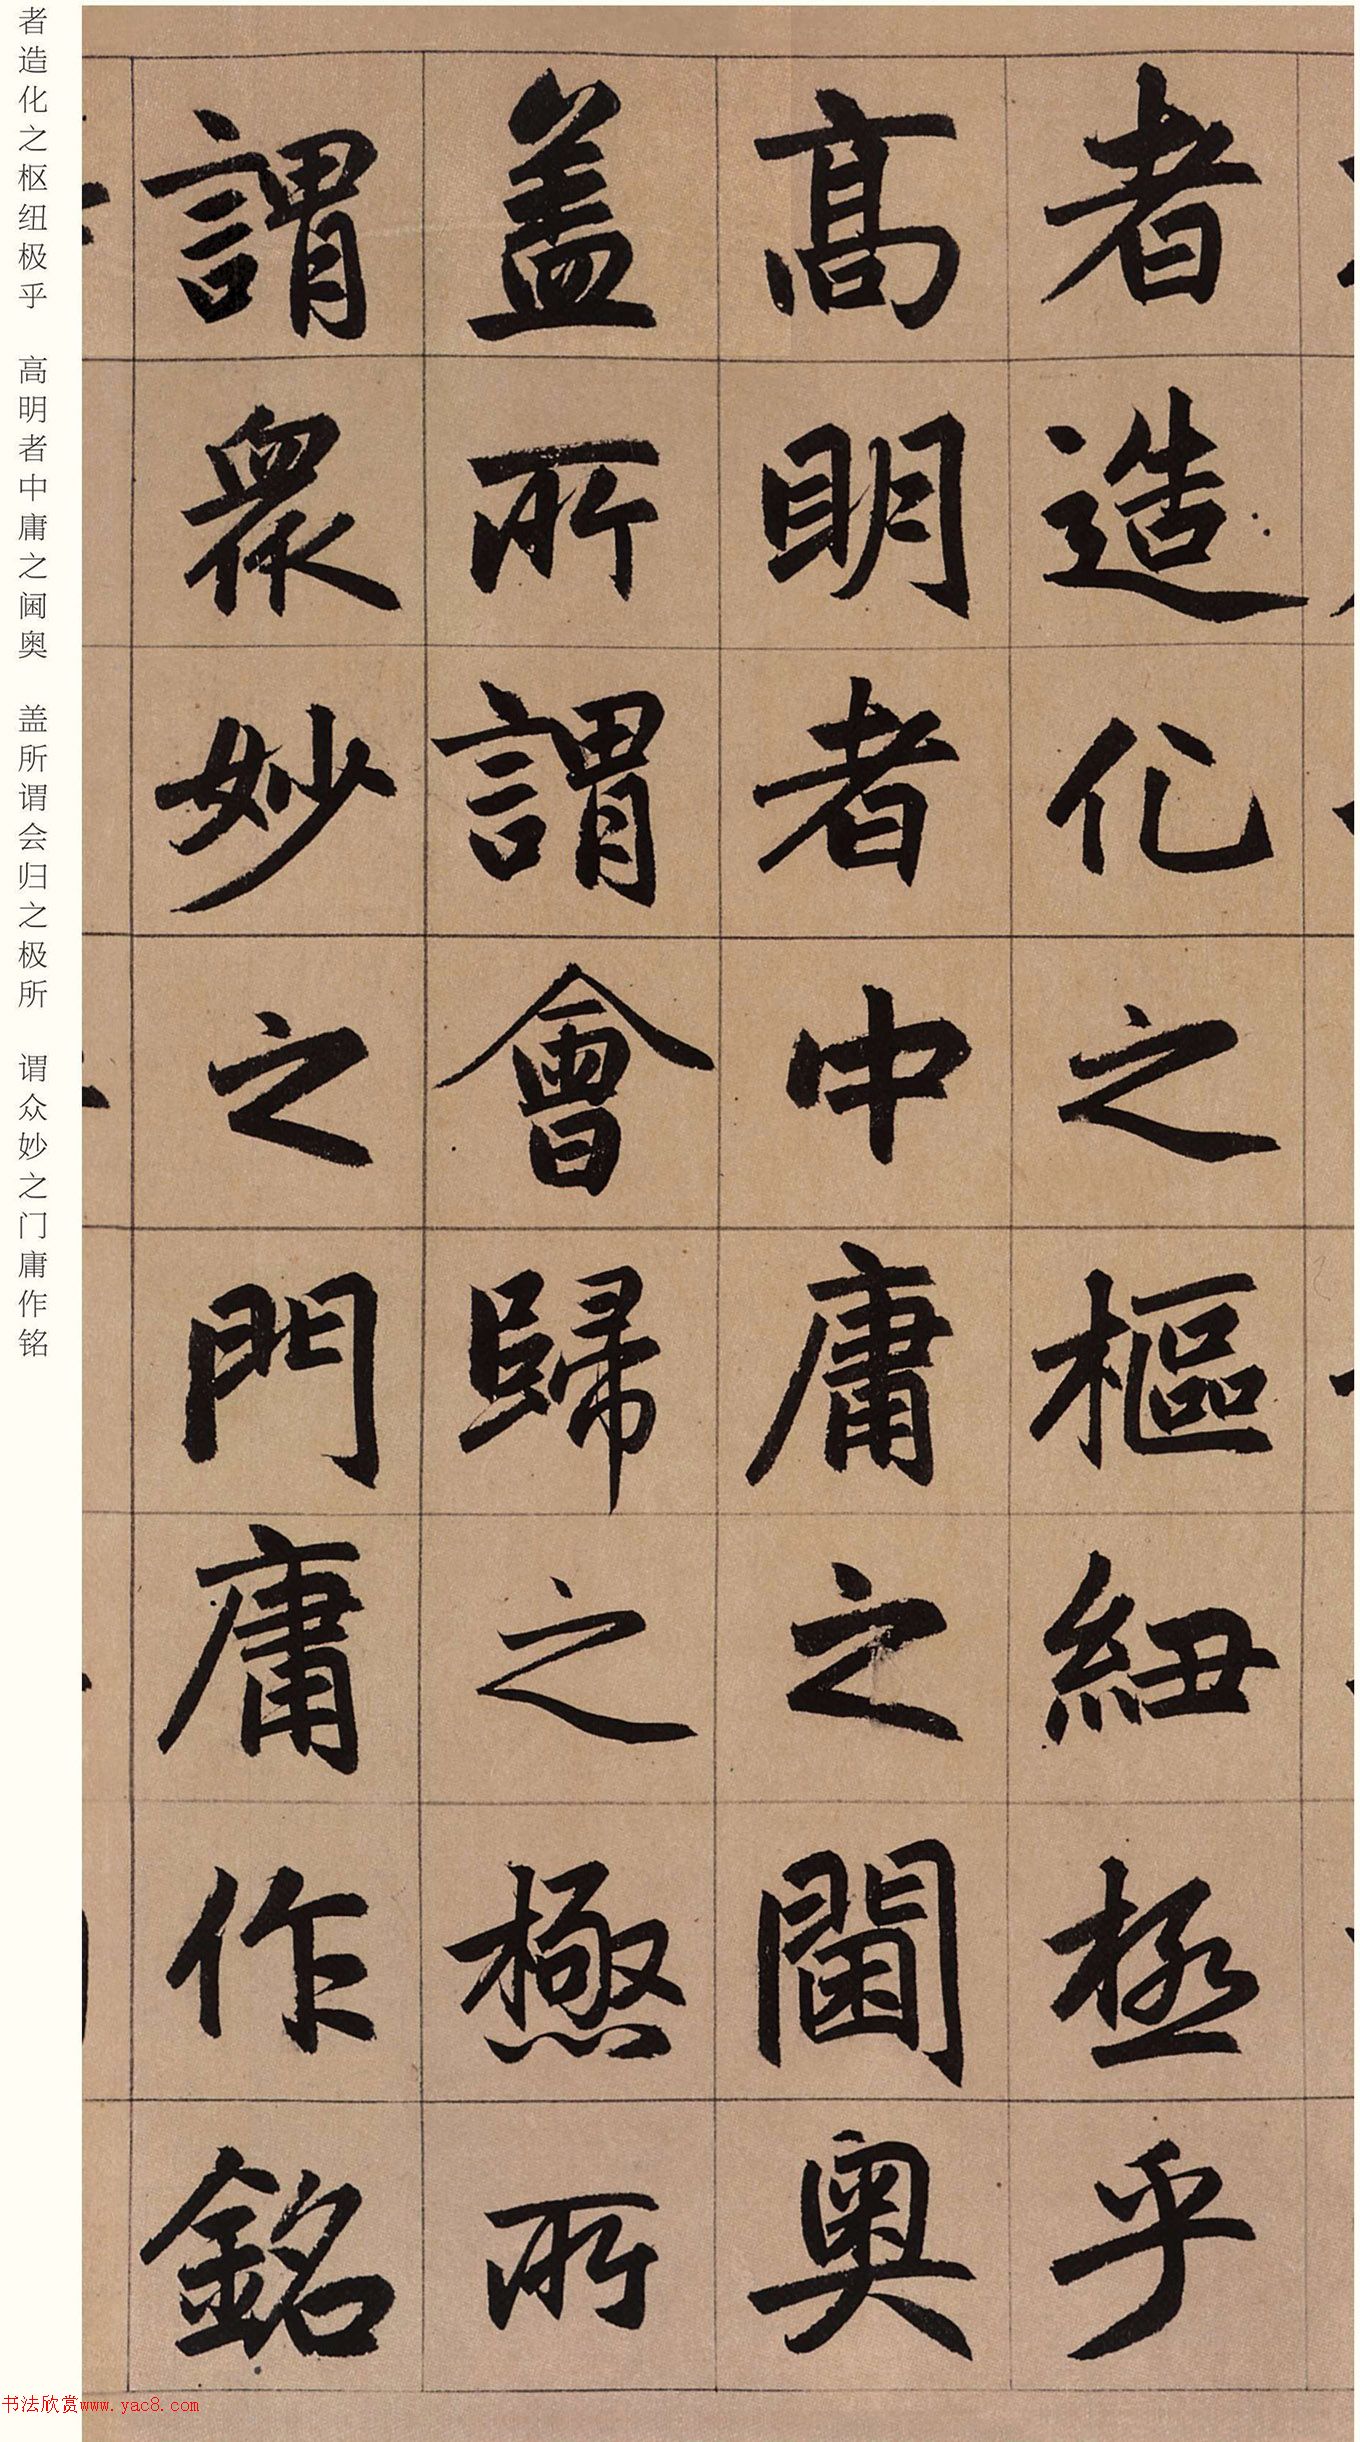 者造化之樞紐極乎
高明者中庸之閫奧
盖所謂會歸之極所
謂衆妙之門庸作銘
者造化之枢纽极乎 高明者中庸之阃奥 盖所谓会归之极所 谓众妙之门庸作铭
书法欣赏www.yac8.com